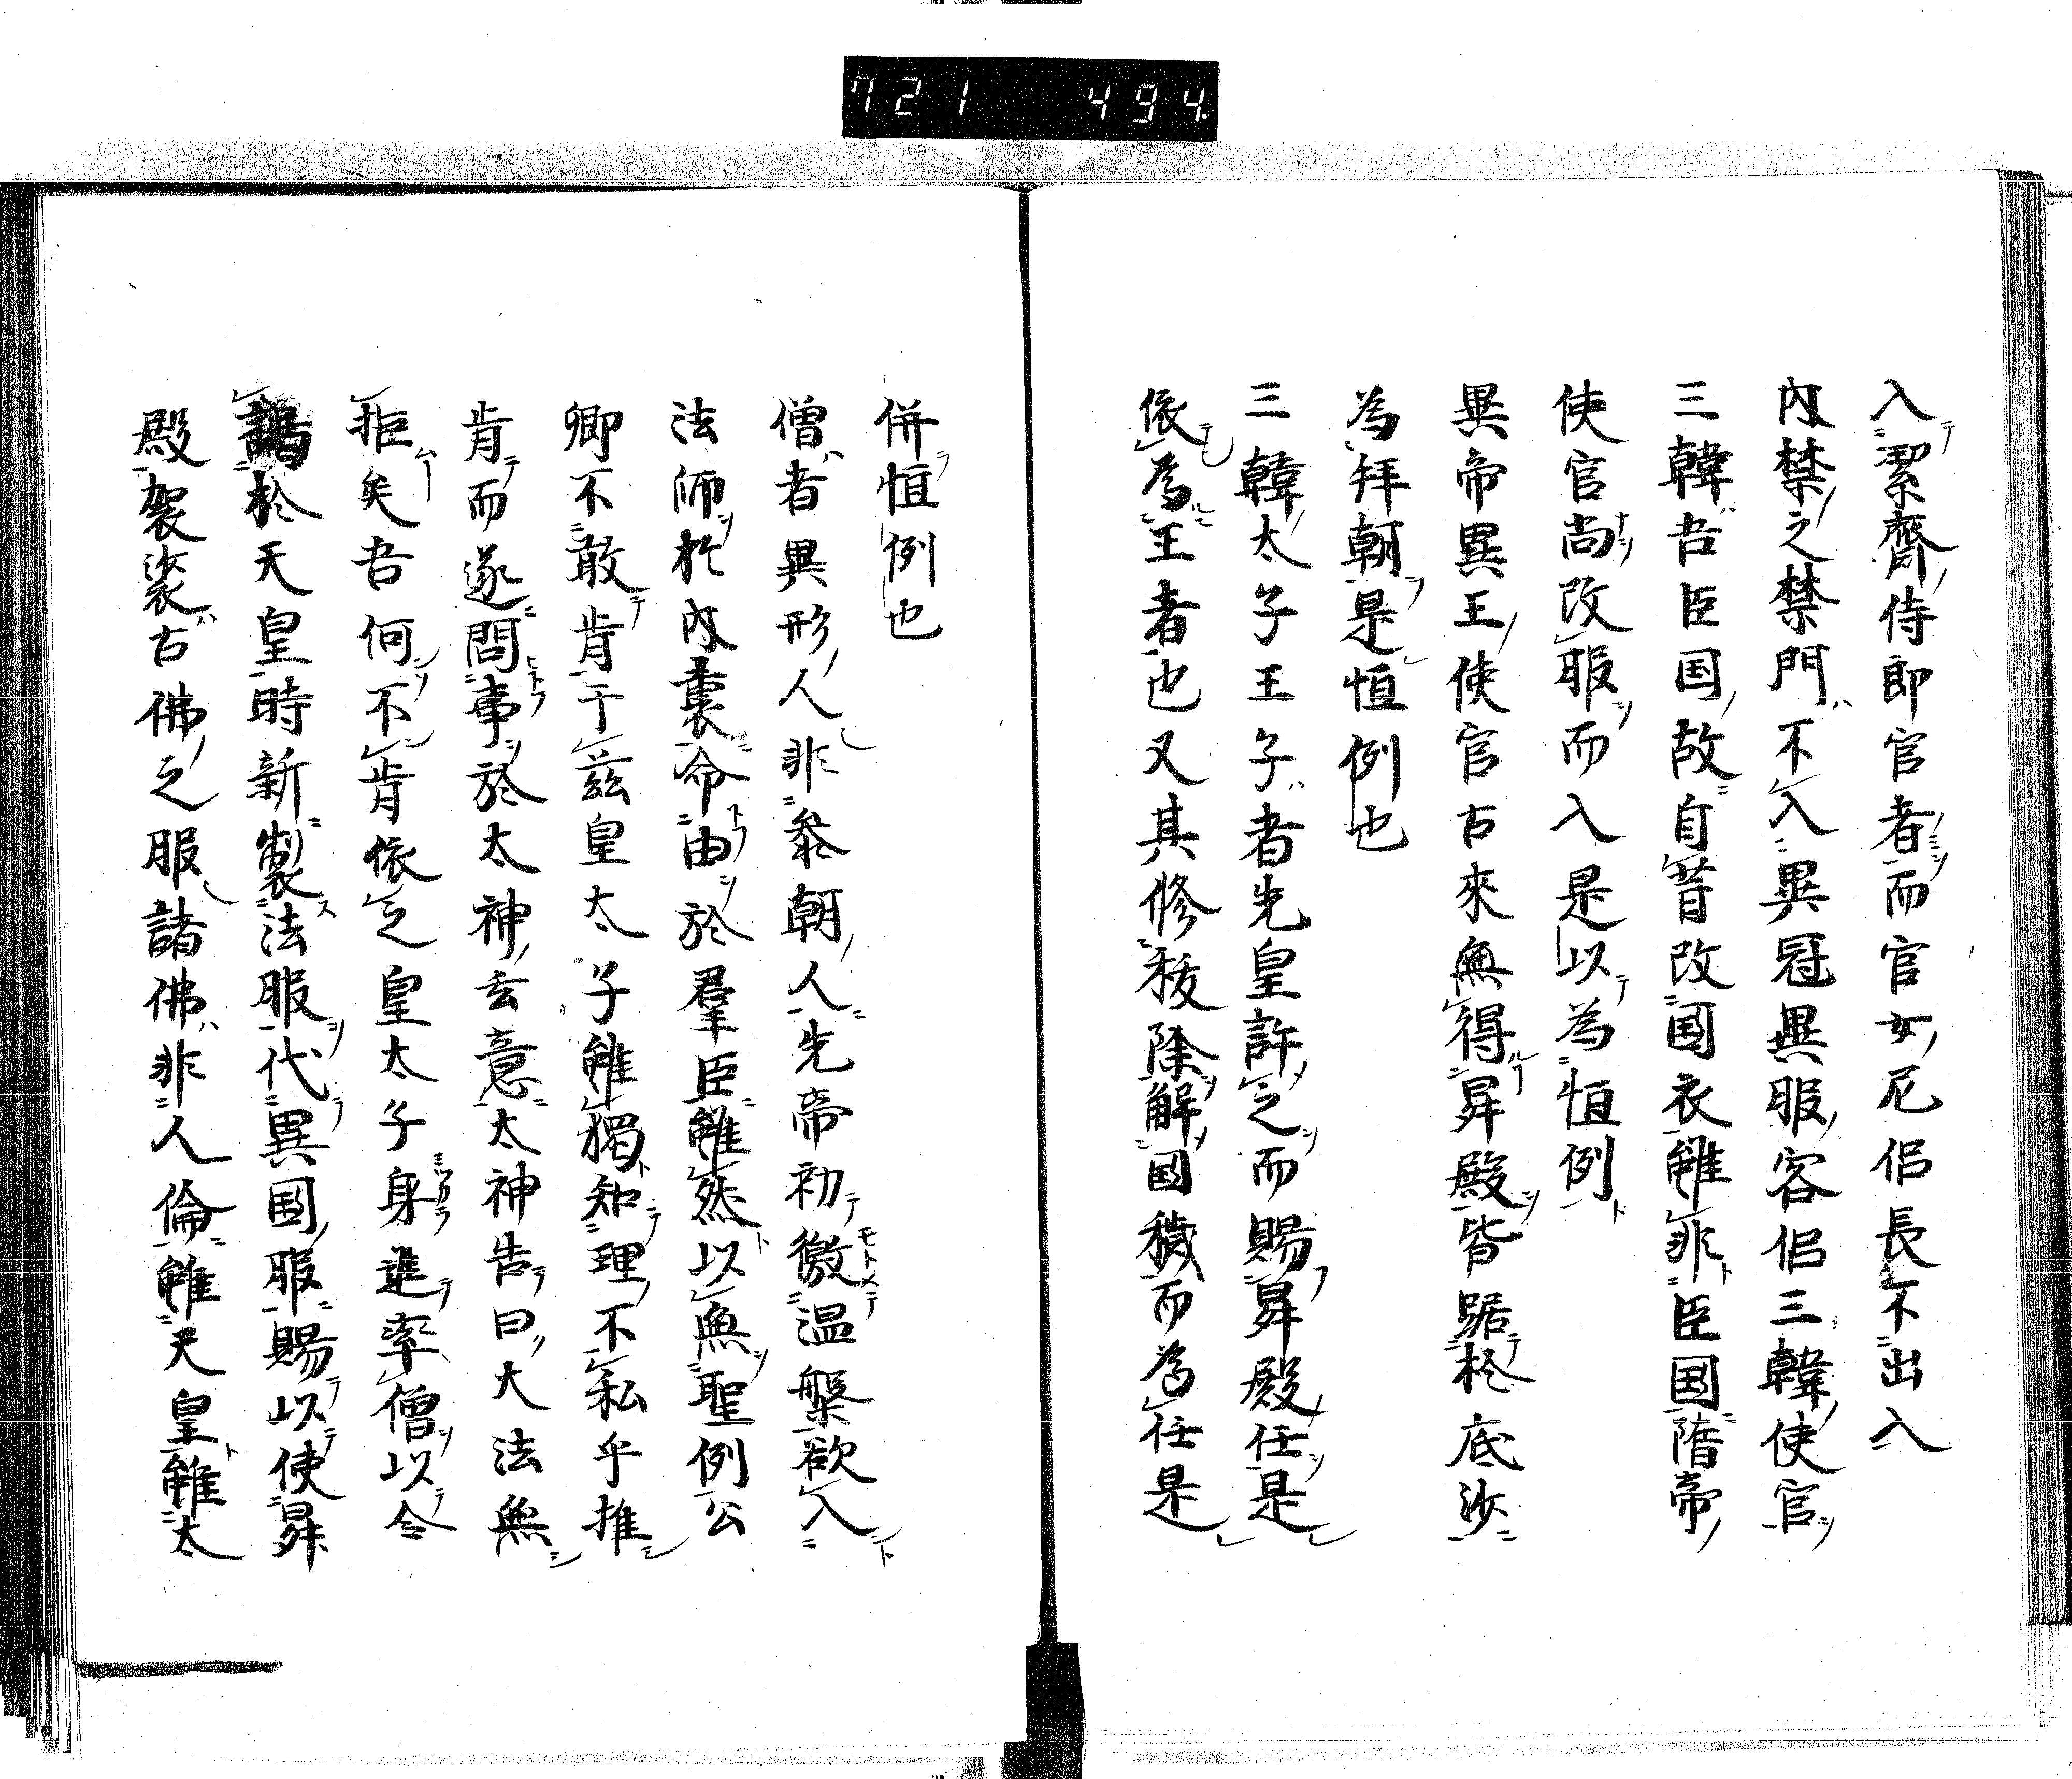 721 494
入潔齋侍郎官者而官女尼侶長不出入
內禁之禁門不入異冠異服客侶三韓使官
三韓吾臣国故自昔改国衣雖非臣国隋帝
使官尚改服而入是以為恒例
異帝異王使官古來無得昇殿皆踞於底沙
為拜朝是恒例也
三韓太子王子者先皇許之而賜昇殿任是
依為王者也又其修祓除解国穢而為任是
併恒例也
僧者異形人非叅朝人先帝初徵温槃欲入
法師於內裏命由於羣臣雖然以無聖例公
卿不敢肯于茲皇太子雖獨知理不私乎推
肯而遂問事於太神玄意太神告曰大法無
拒矣吾何不肯依之皇太子身進率僧以令
謁於天皇時新製法服代異国服賜以使昇
殿袈裟古佛之服諸佛非人倫雖天皇雖太